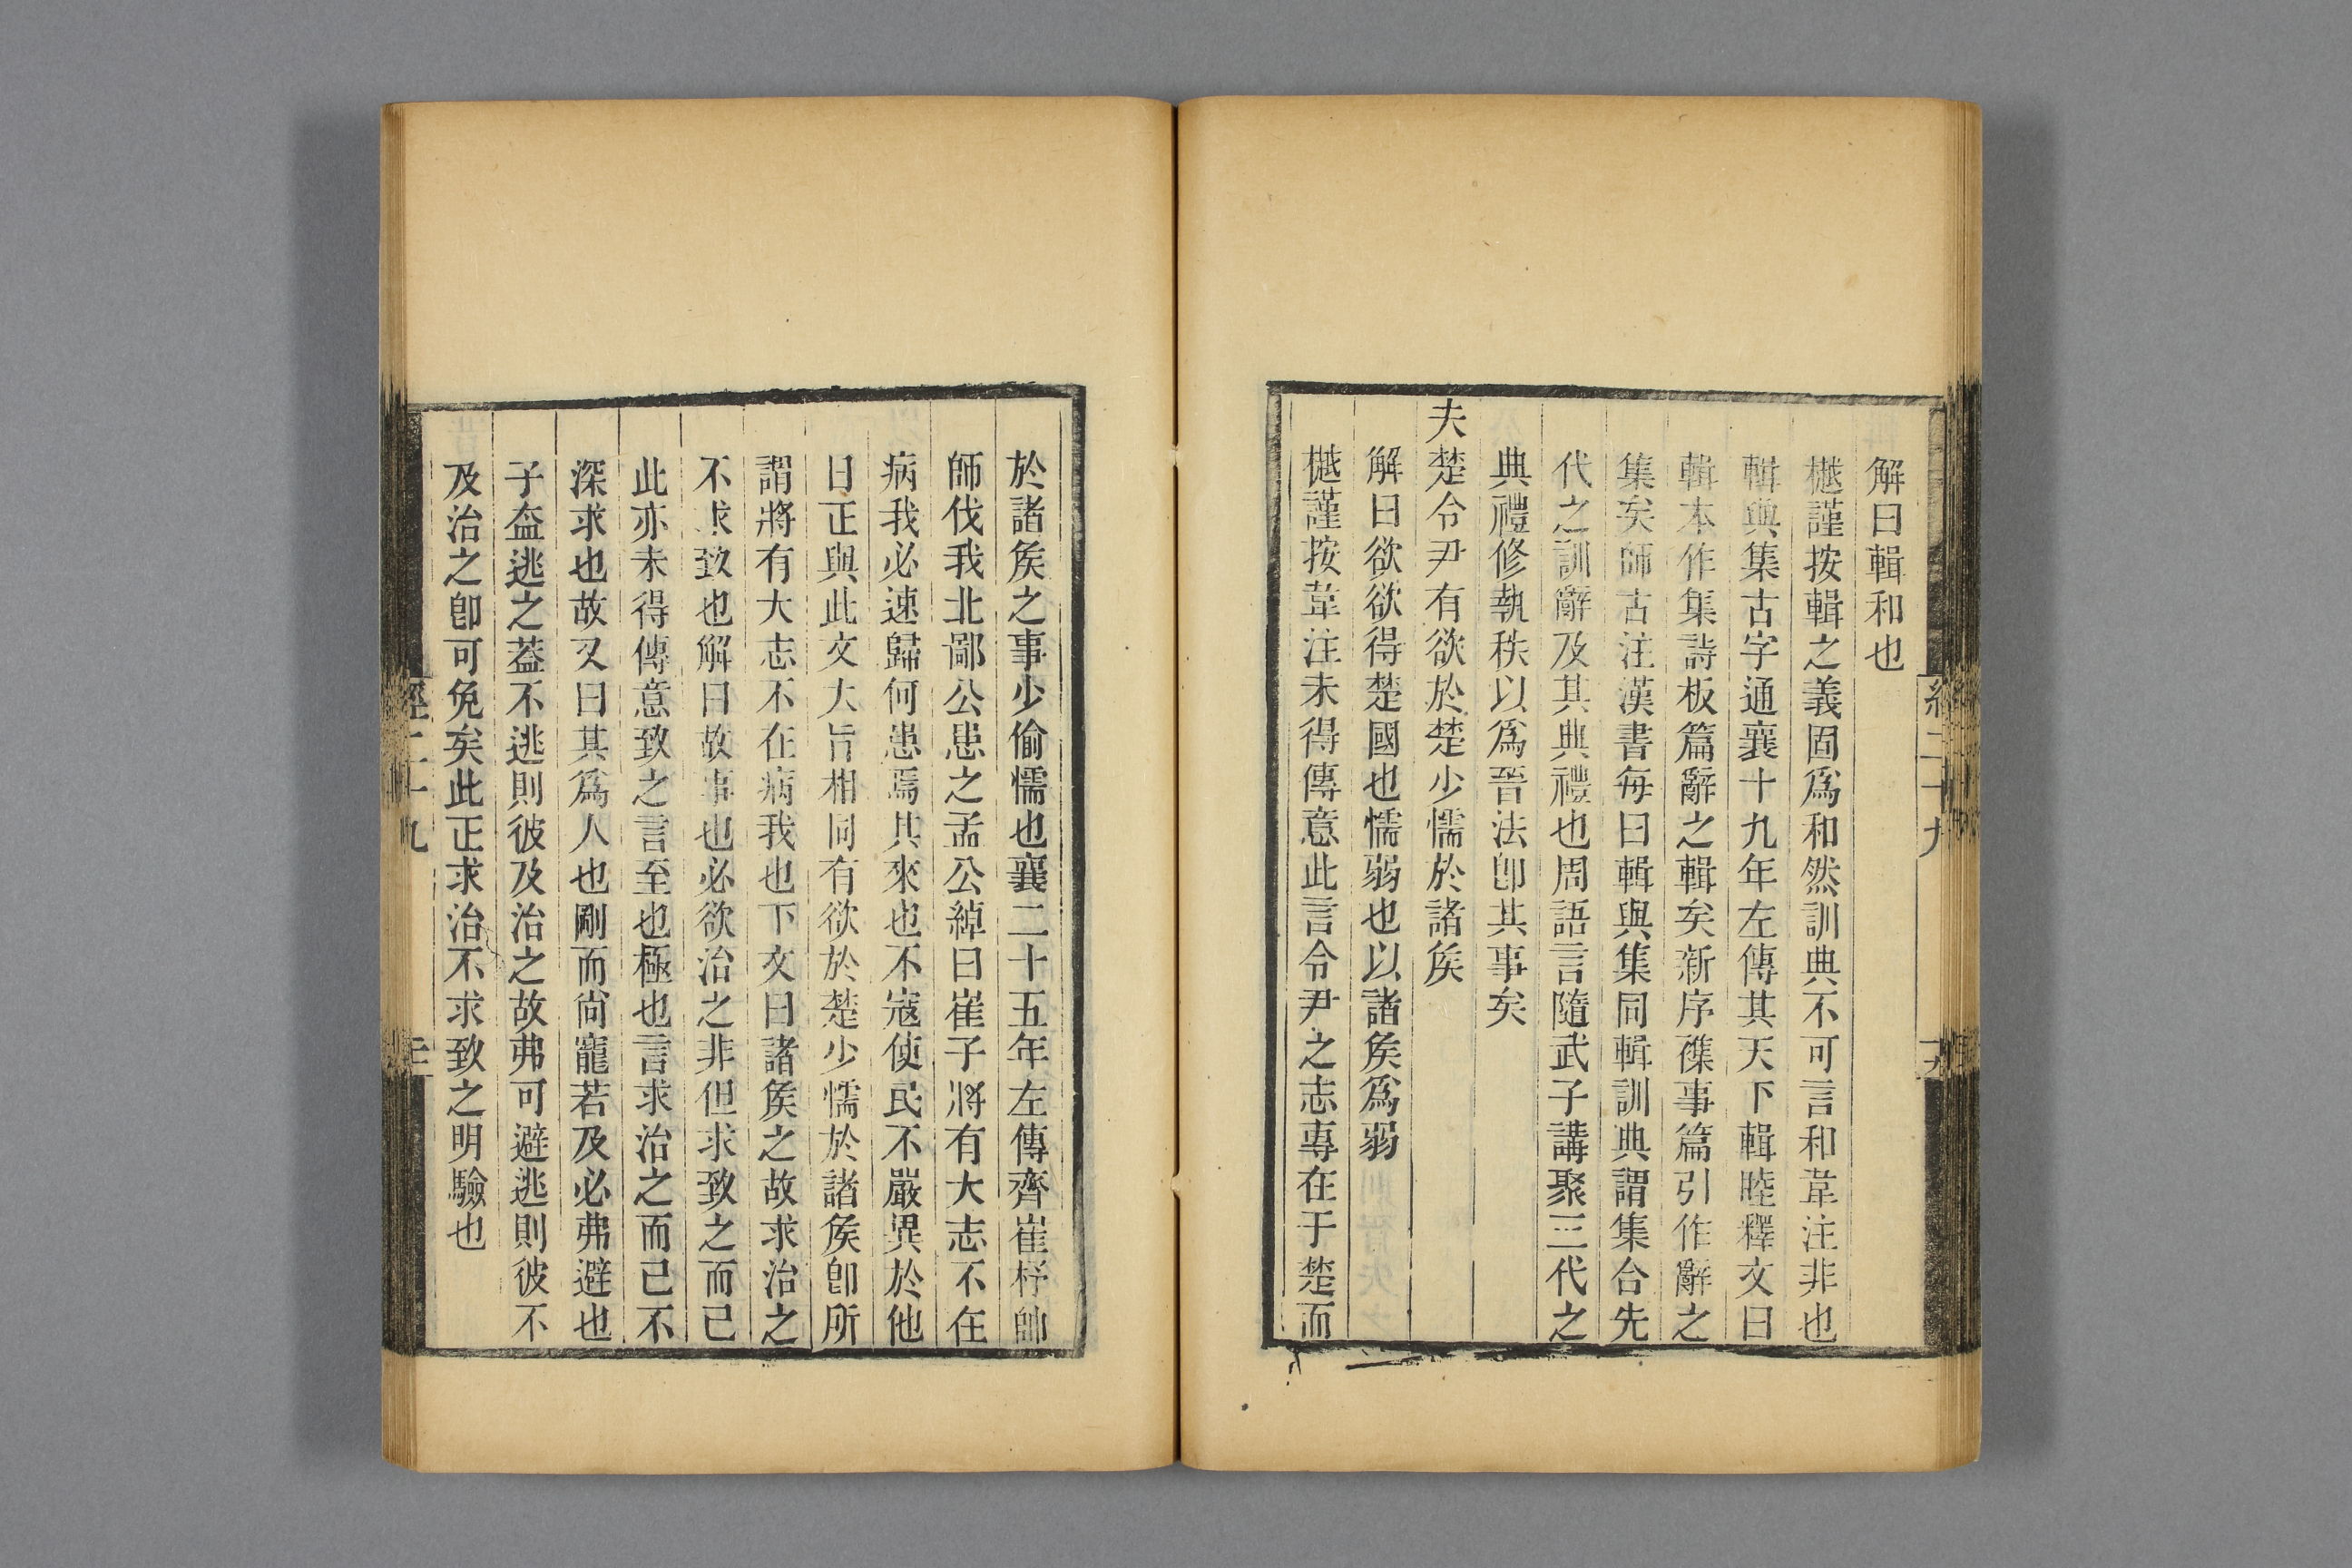 解曰輯和也
樾謹按輯之義固爲和然訓典不可言和韋注非也
輯與集古字通襄十九年左傳其天下輯睦釋文曰
輯本作集詩板篇辭之輯矣新序襍事篇引作辭之
集矣師古注漢書每曰輯與集同輯訓典謂集合先
代之訓辭及其典禮也周語言隨武子講聚三代之
典禮修執秩以爲晉法卽其事矣
夫楚令尹有欲於楚少懦於諸矦
解曰欲欲得楚國也懦弱也以諸矦爲弱
樾謹按韋注未得傳意此言令尹之志專在于楚而
於諸矦之事少偷懦也襄二十五年左傳齊崔杼帥
師伐我北鄙公患之孟公綽曰崔子將有大志不在
病我必速歸何患焉其來也不寇使民不嚴異於他
日正與此文大旨相同有欲於楚少懦於諸矦卽所
謂將有大志不在病我也下文曰諸矦之故求治之
不求致也解曰故事也必欲治之非但求致之而已
此亦未得傳意致之言至也極也言求治之而已不
深求也故又曰其爲人也剛而尙寵若及必弗避也
子盍逃之蓋不逃則彼及治之故弗可避逃則彼不
及治之卽可免矣此正求治不求致之明驗也
經二十九